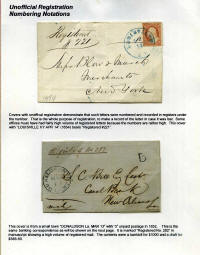 Unofficial Registration
Numbering Notations
Registered
# 221
Messrs Blow & March
Merchants
New York
1854
Covers with unofficial registration demonstrate that such letters were numbered and recorded in registers under
the number. That is the whole purpose of registration, to make a record of the letter in case it was lost. Some
offices must have had fairly high volume of registered letters because the numbers are rather high. This cover
with "LOUISVILLE KY APR 14" (1854) bears "Registered #221".
Registered No 282
5
S C
New Orleans
This cover is from a small town "DONALDSON La. MAR 12" with "5" unpaid postage in 1852. This is the
same banking correspondence as will be shown on the next page. It is marked "Registered No. 282" in
manuscript showing a high volume of registered mail. The contents were a banknote for $1000 and a draft for